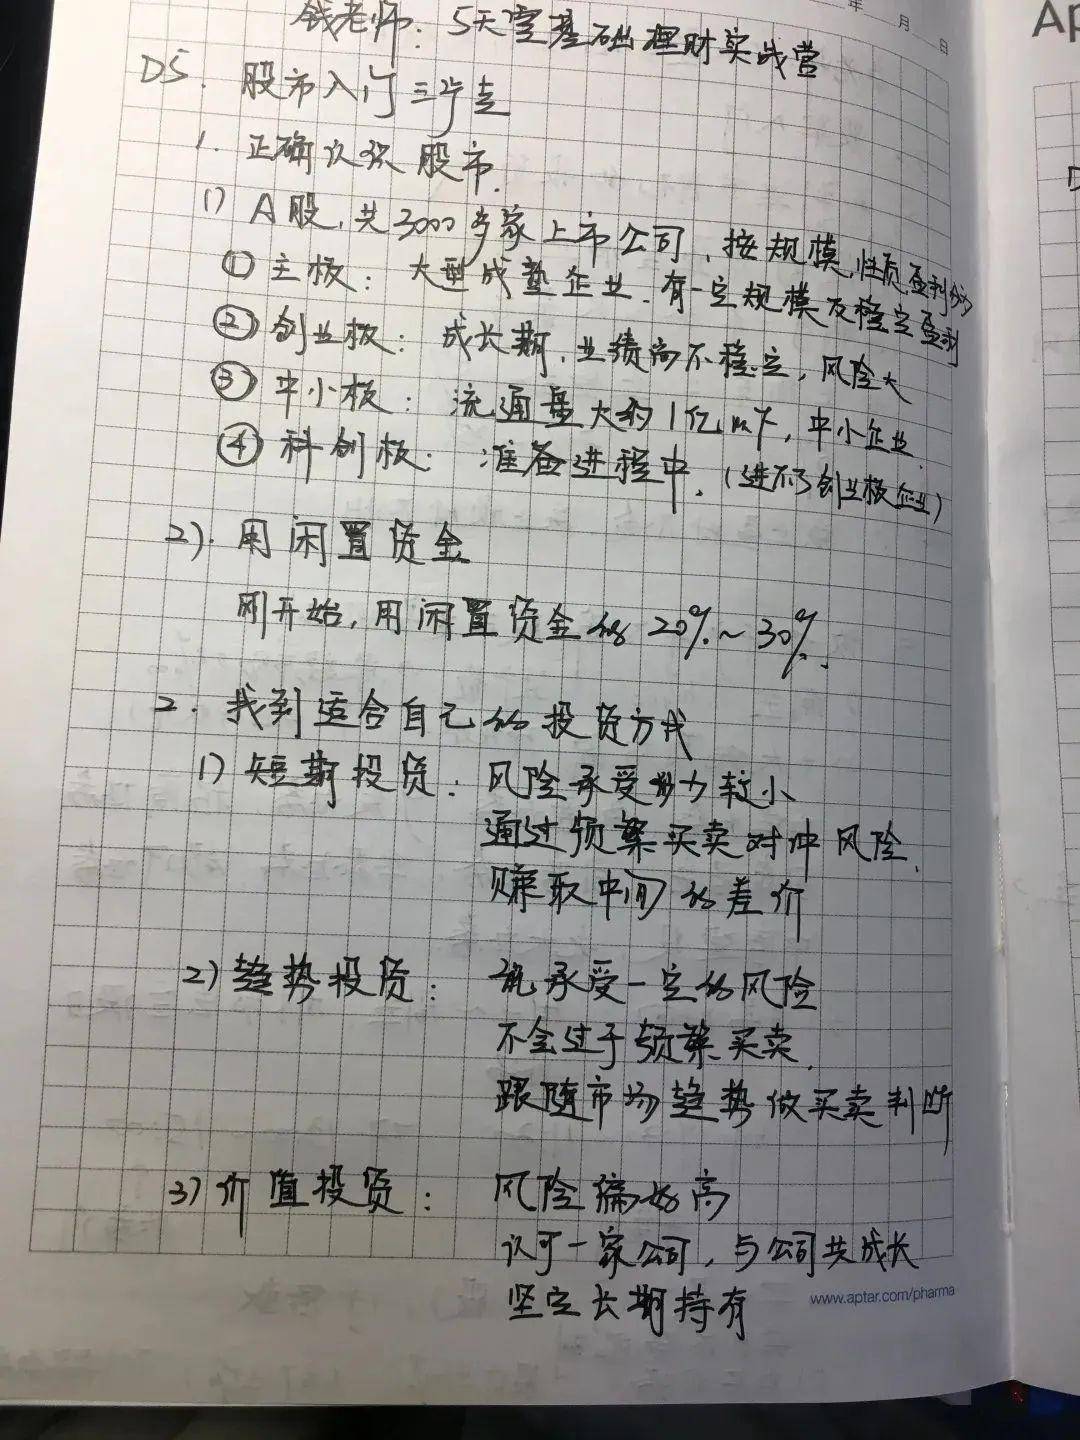 年 月 日
Ap
钱老师：5天零基础理财实战营
D5. 股市入门三步走
1. 正确认识股市.
1) A股，共3000多家上市公司，按规模，性质，盈利分
① 主板：大型成熟企业，有一定规模及稳定盈利
② 创业板：成长期，业绩尚不稳定，风险大
③ 中小板：流通盘大约1亿以下，中小企业.
④ 科创板：准备进程中.（进不了创业板企业）
2). 用闲置资金
刚开始，用闲置资金的20%~30%.
2. 找到适合自己的投资方式
1) 短期投资：风险承受能力较小
通过频繁买卖对冲风险.
赚取中间的差价
2) 趋势投资：能承受一定的风险
不会过于频繁买卖.
跟随市场趋势做买卖判断
3) 价值投资：风险偏好高
认可一家公司，与公司共成长
坚定长期持有
www.aptar.com/pharma